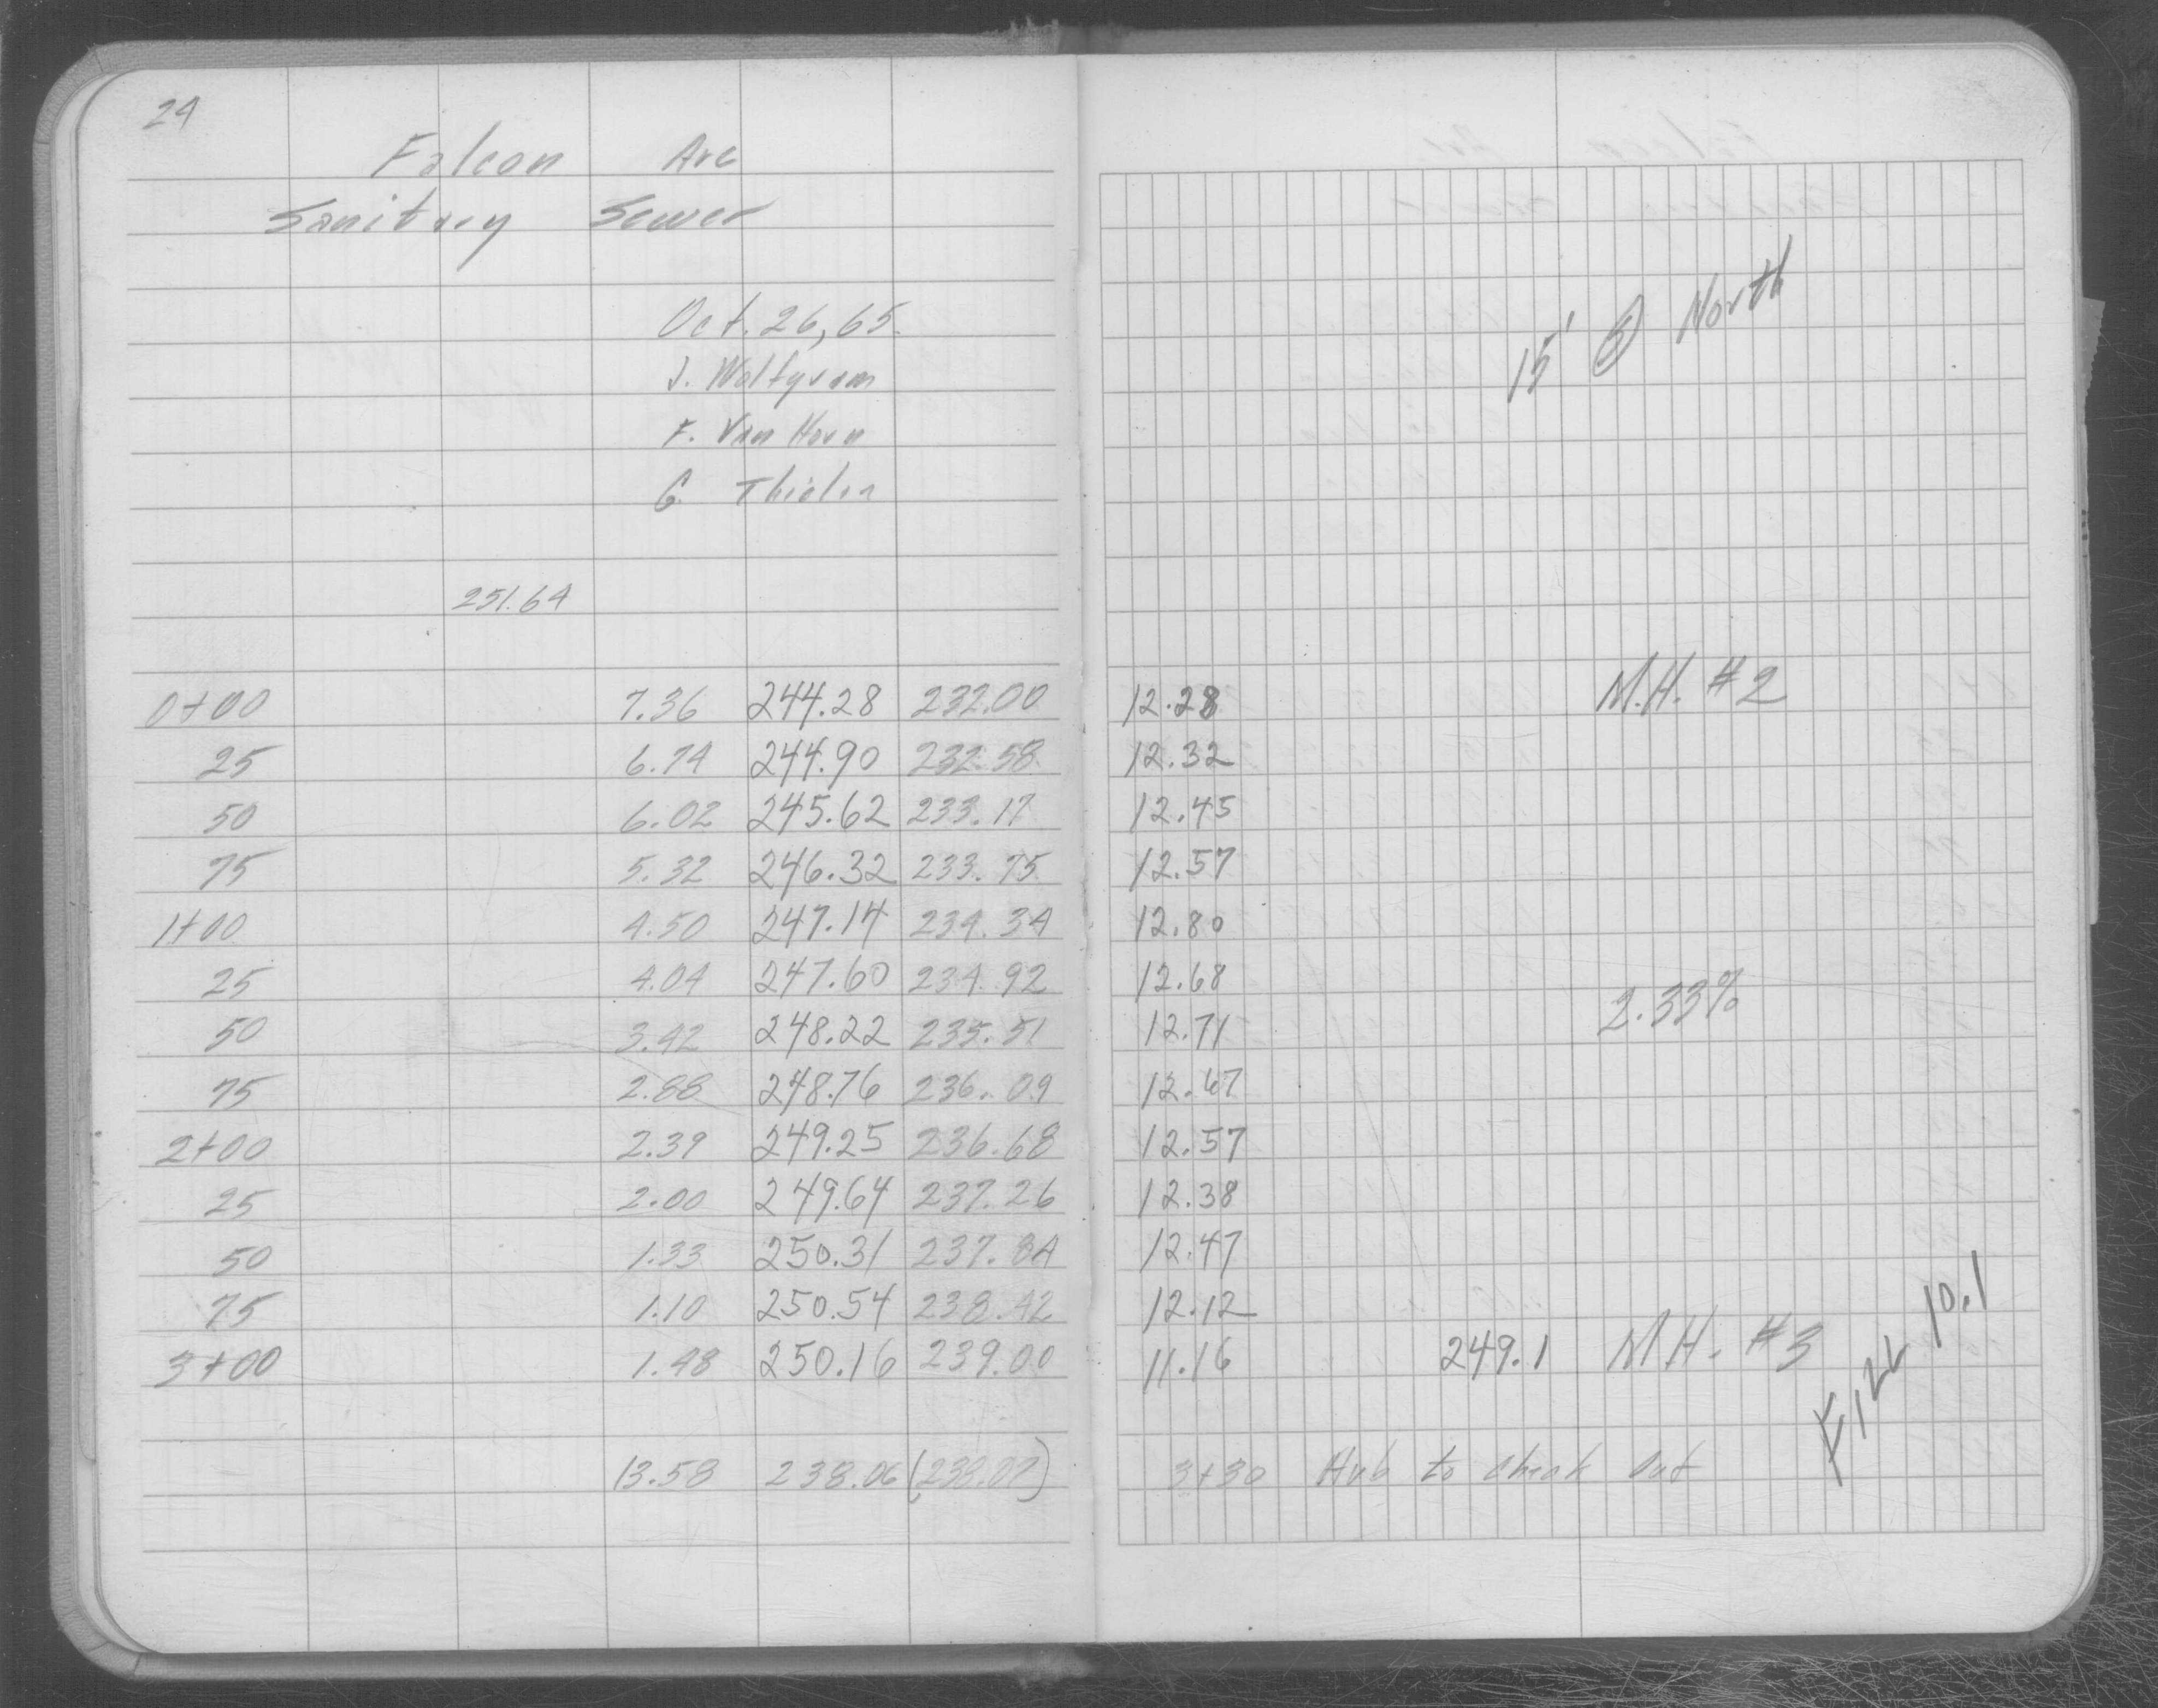 24
Falcon Ave
Sanitary Sewer
Oct. 26, 65.
J. Wolfgram
F. Van Horn
G Thielen
15' @ North
251.64
0+00 7.36 244.28 232.00 12.28 M.H. #2
25 6.74 244.90 232.58 12.32
50 6.02 245.62 233.17 12.45
75 5.32 246.32 233.75 12.57
1+00 4.50 247.14 234.34 12.80
25 4.04 247.60 234.92 12.68
50 3.42 248.22 235.51 12.71 2.33%
75 2.88 248.76 236.09 12.67
2+00 2.39 249.25 236.68 12.57
25 2.00 249.64 237.26 12.38
50 1.33 250.31 237.84 12.47
75 1.10 250.54 238.42 12.12
3+00 1.48 250.16 239.00 11.16 249.1 M.H. #3
FILL 10.1
13.58 238.06 (238.07) 3+30 Hub to check out